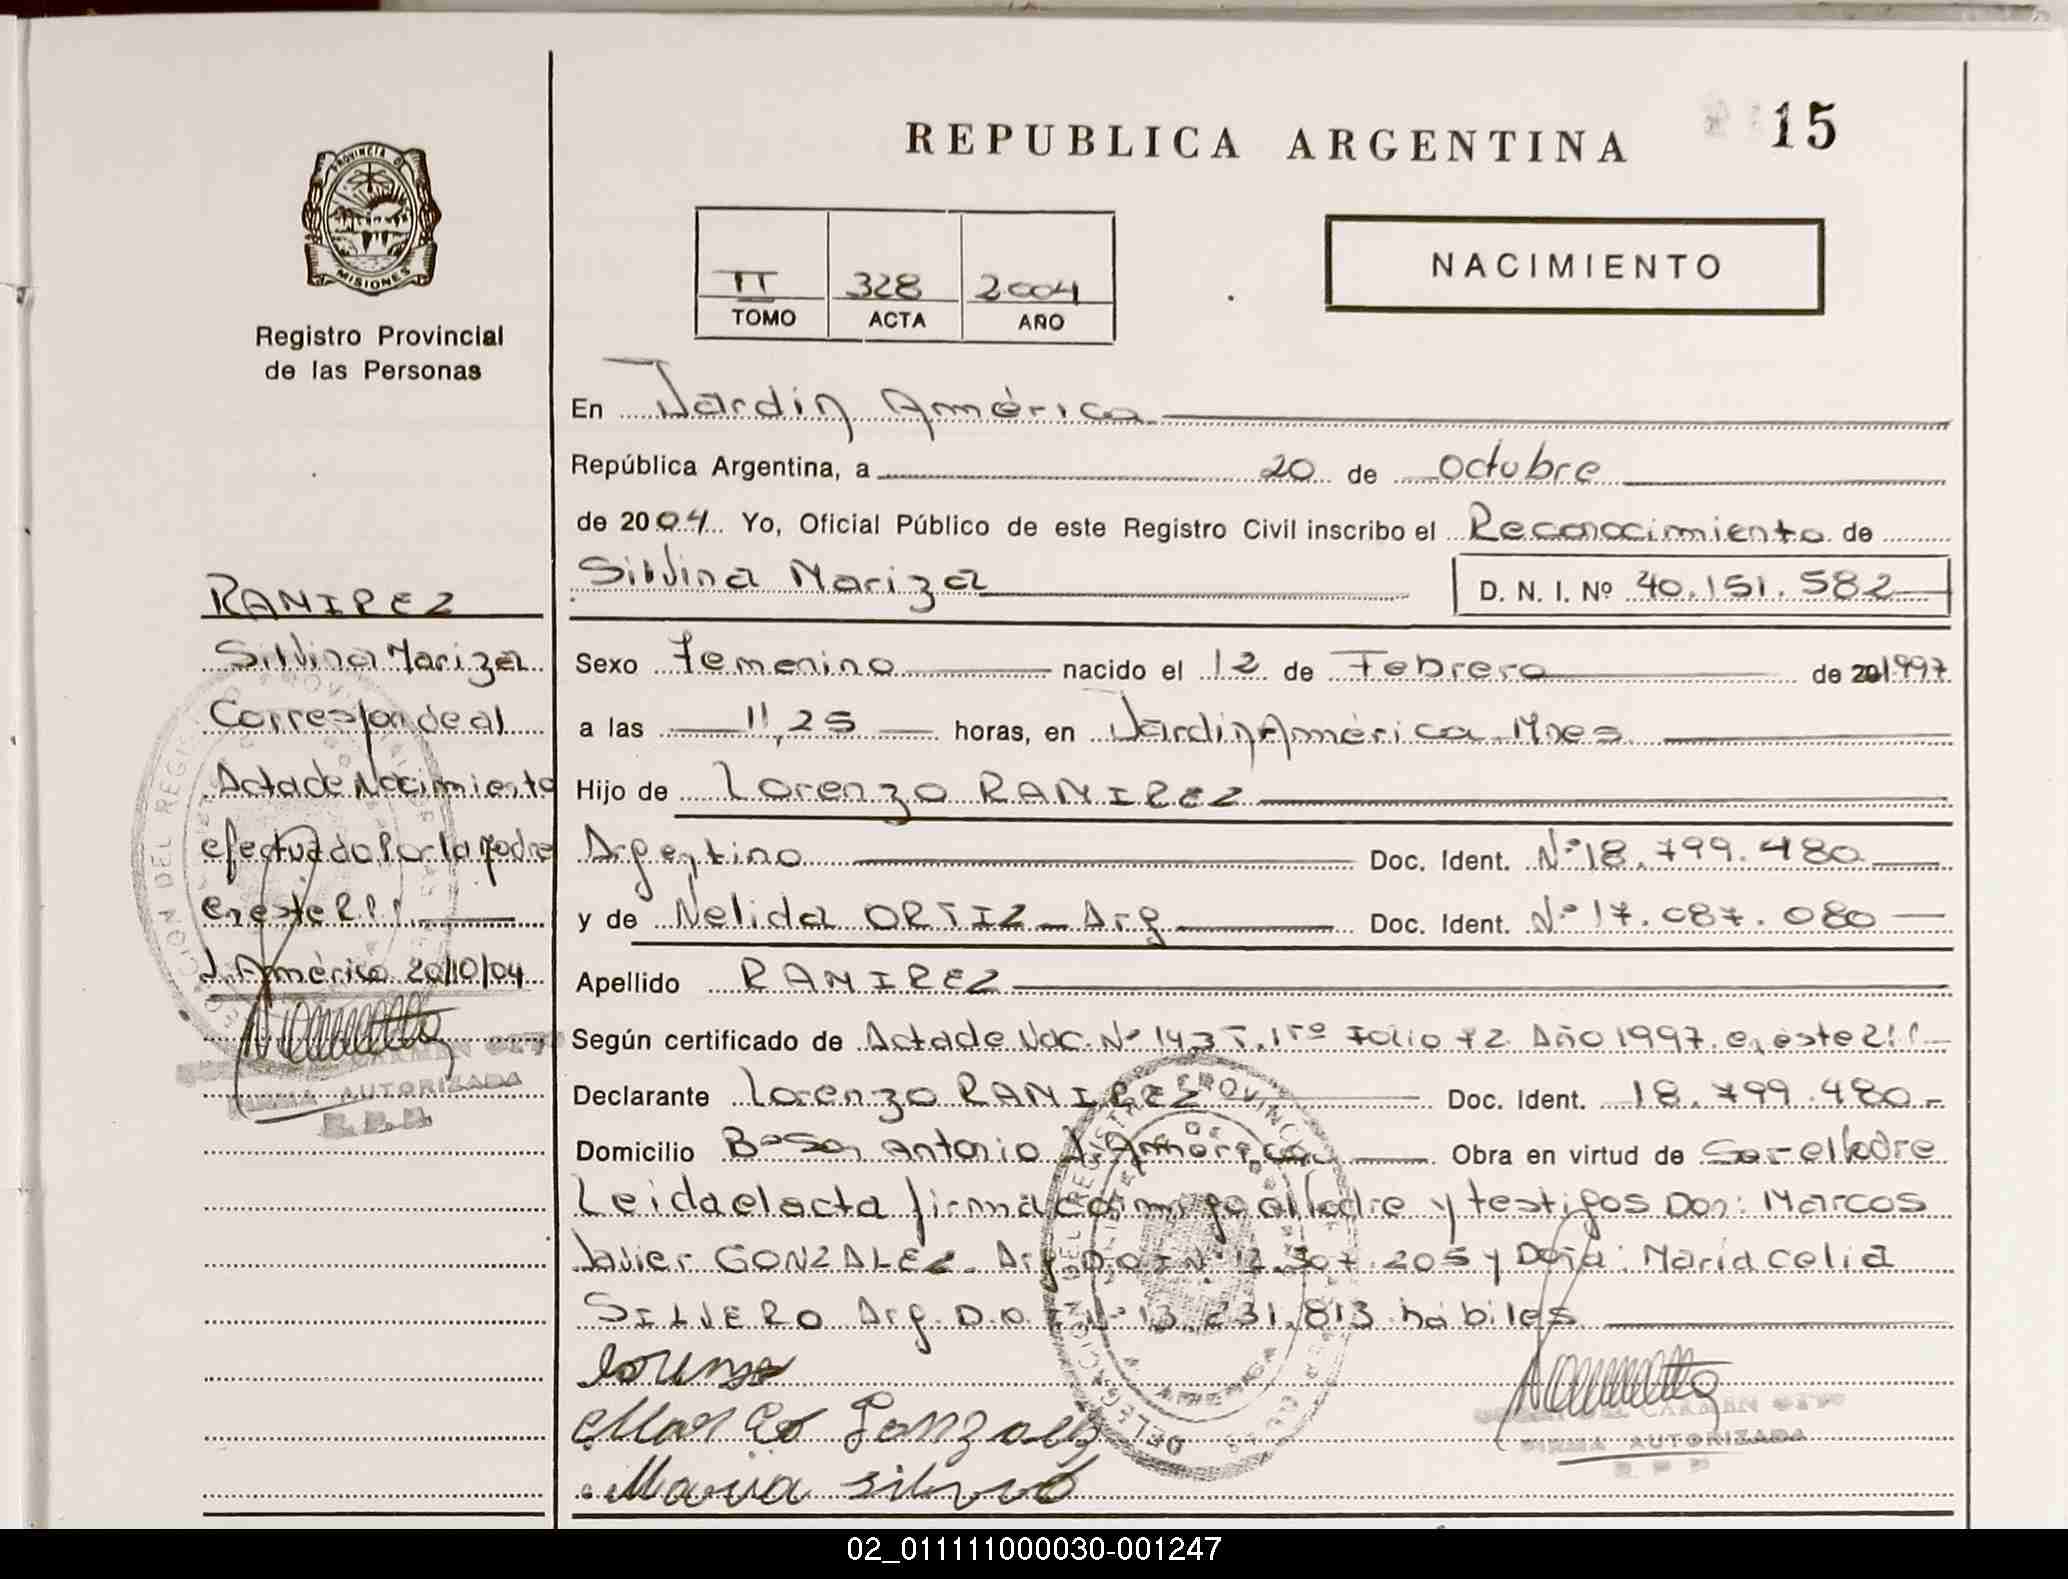 REPUBLICA ARGENTINA
15
PROVINCIA D
MISIONES
Registro Provincial
de las Personas
II 328 2004
TOMO ACTA AÑO
NACIMIENTO
En Jardín América
República Argentina, a 20 de octubre
de 2004 Yo, Oficial Público de este Registro Civil inscribo el Reconocimiento de
Silvina Mariza
D. N. I. Nº 40.151.582
Sexo Femenino nacido el 12 de Febrero de 201997
a las 11,25 horas, en Jardín América Mnes
Hijo de Lorenzo RAMIREZ
Argentino Doc. Ident. Nº 18.799.480
y de Nelida ORTIZ - Arg Doc. Ident. Nº 17.087.080
Apellido RAMIREZ
Según certificado de Acta de Nac. Nº 143 T. Iº Folio 72 Año 1997 en este
Declarante Lorenzo RAMIREZ Doc. Ident. 18.799.480
Domicilio Bº San Antonio J. América Obra en virtud de Ser el Padre
Leida el acta firma conmigo el Padre y testigos Don: Marcos
Javier GONZALEZ Arg D.N.I Nº 205 y Doña: Maria Celia
SILVERO Arg. D.N.I Nº 13.231.813 hábiles
Lorenzo
Marcos Gonzalez
Maria Silvero
RAMIREZ
Silvina Mariza
Corresponde al
Acta de Nacimiento
efectuada Por la Madre
en este R.P.P.
J. América 20/10/04
DEL CARMEN
FIRMA AUTORIZADA
DEL CARMEN
FIRMA AUTORIZADA
R P P
02_011111000030-001247